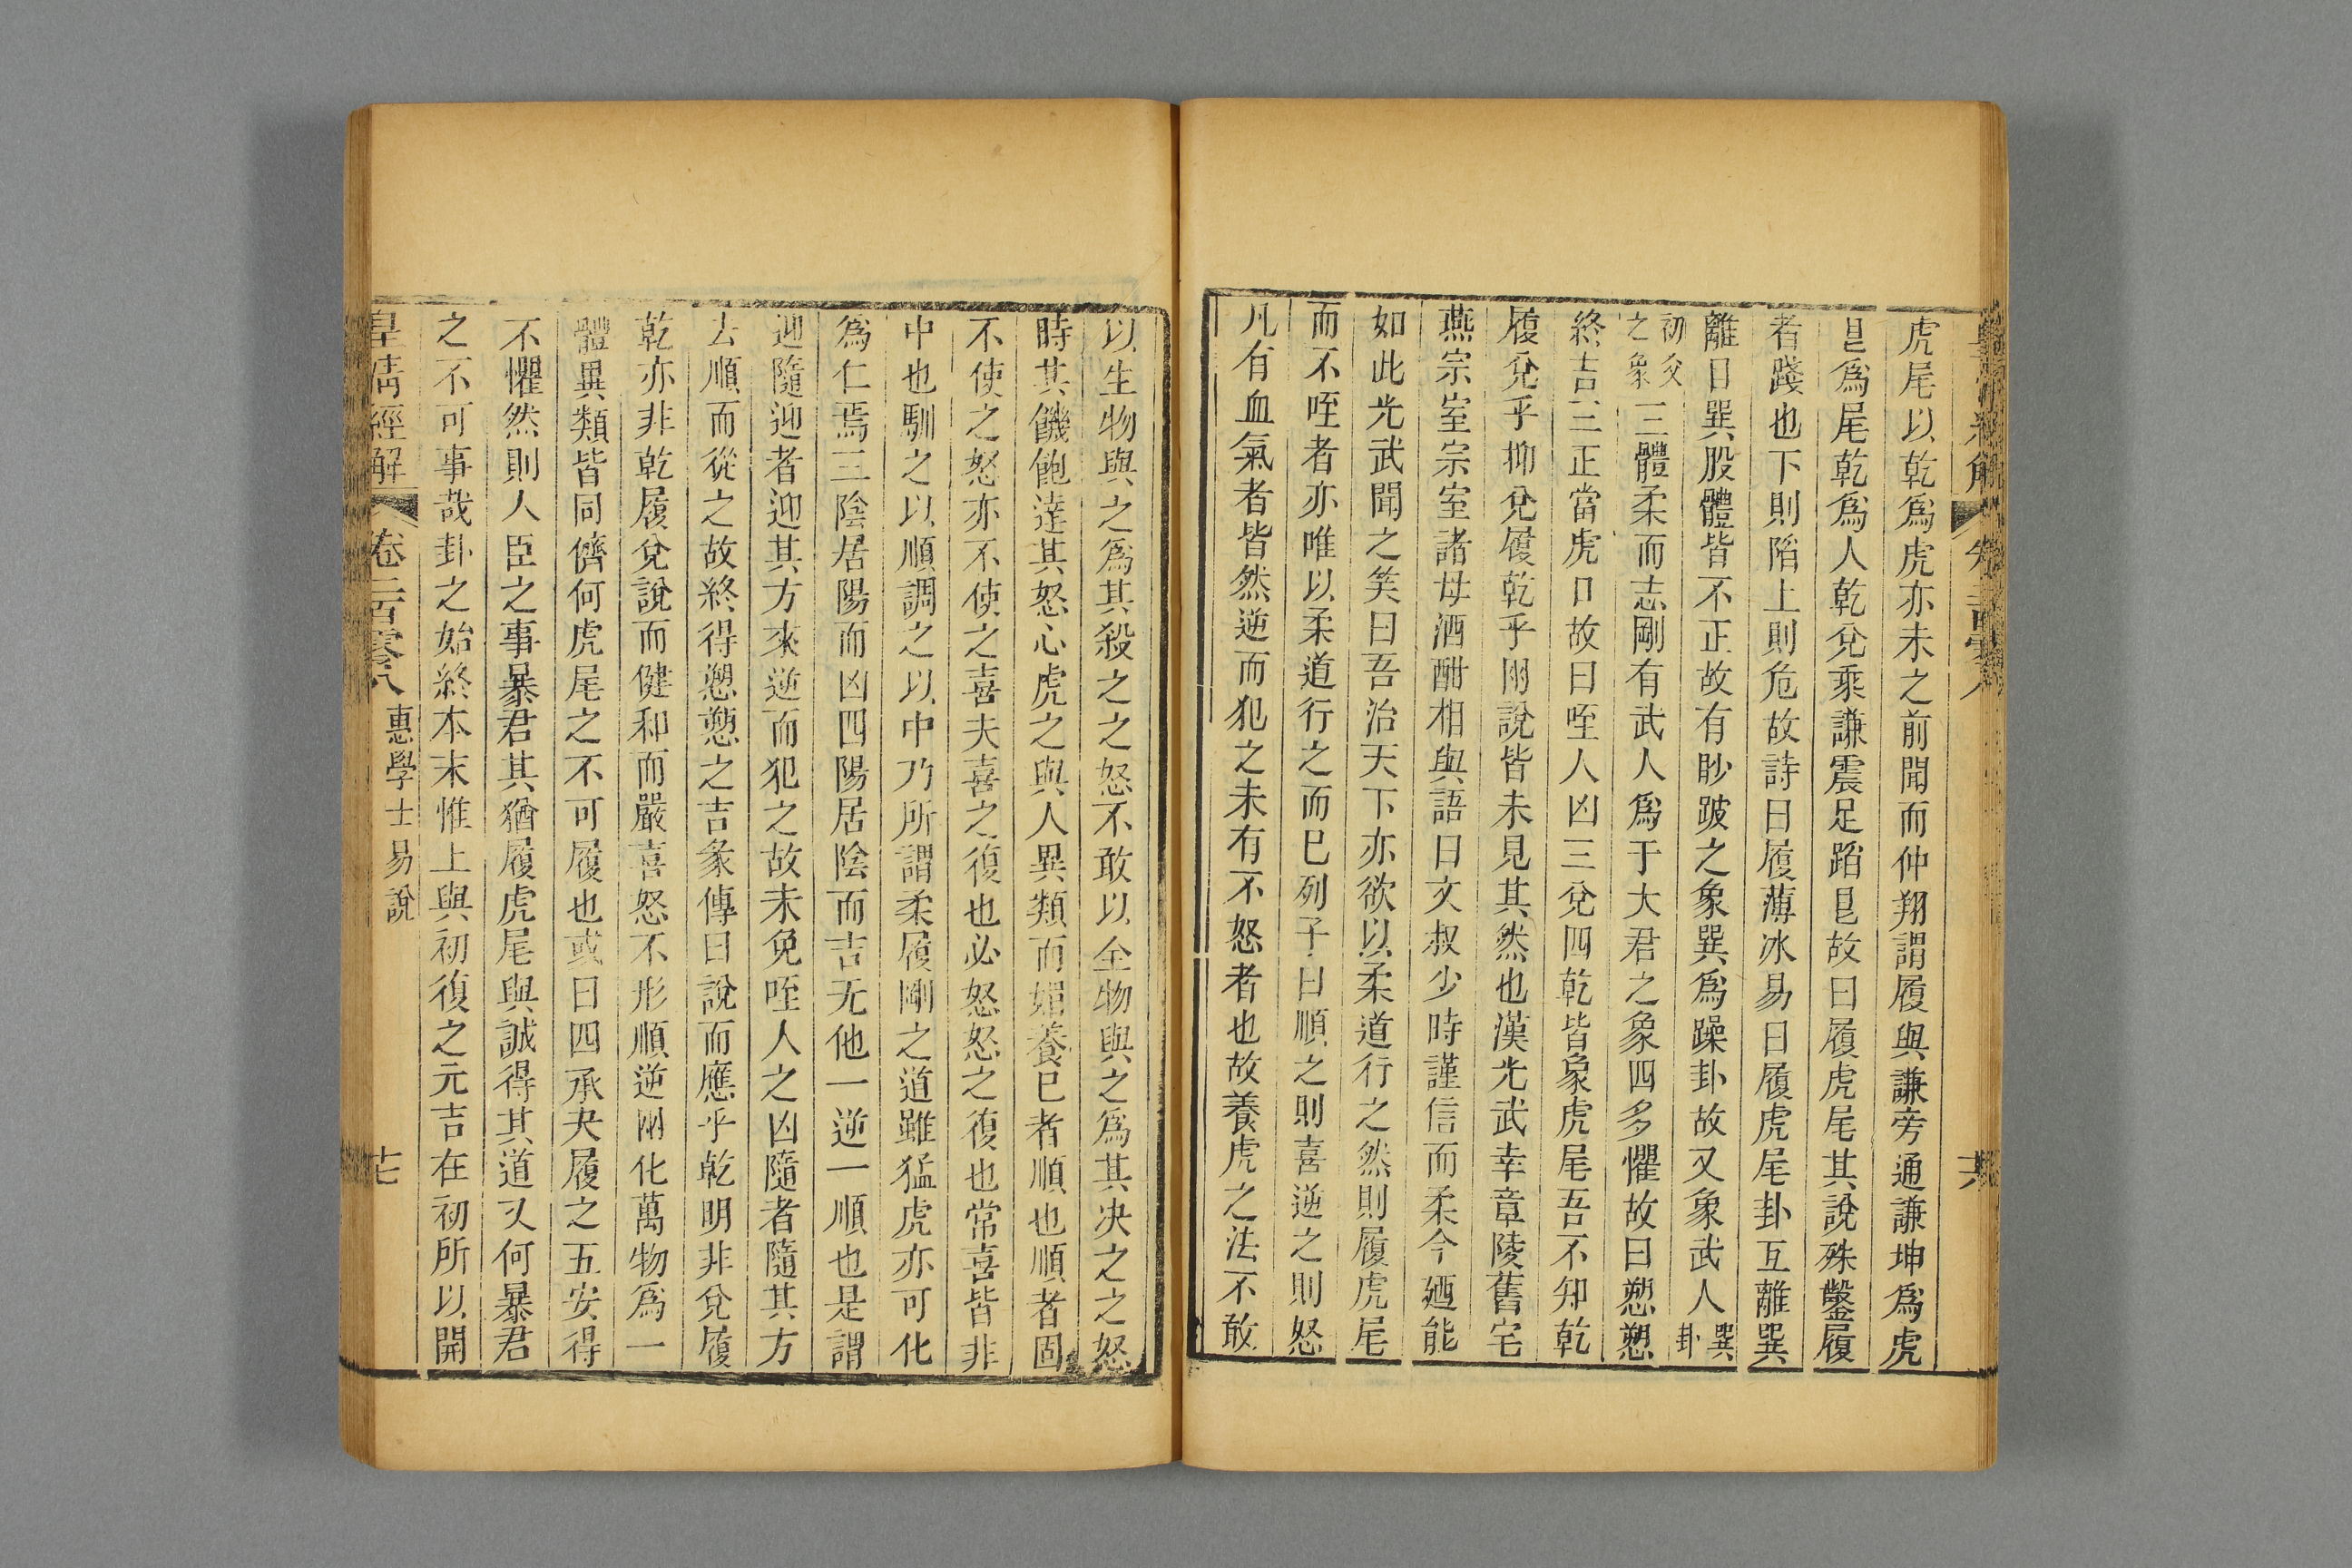 虎尾以乾爲虎亦未之前聞而仲翔謂履與謙旁通謙坤爲虎
艮爲尾乾爲人乾兌乘謙震足蹈艮故曰履虎尾其說殊鑿履
者踐也下則陷上則危故詩曰履薄冰易曰履虎尾卦互離巽
離目巽股體皆不正故有眇跛之象巽爲躁卦故又象武人巽卦
初爻之象三體柔而志剛有武人爲于大君之象四多懼故曰愬愬
終吉三正當虎口故曰咥人凶三兌四乾皆象虎尾吾不知乾
履兌乎抑兌履乾乎兩說皆未見其然也漢光武幸章陵舊宅
燕宗室宗室諸母酒酣相與語曰文叔少時謹信而柔今廼能
如此光武聞之笑曰吾治天下亦欲以柔道行之然則履虎尾
而不咥者亦唯以柔道行之而已列子曰順之則喜逆之則怒
凡有血氣者皆然逆而犯之未有不怒者也故養虎之法不敢
以生物與之爲其殺之之怒不敢以全物與之爲其决之之怒
時其饑飽達其怒心虎之與人異類而媚養已者順也順者固
不使之怒亦不使之喜夫喜之復也必怒怒之復也常喜皆非
中也馴之以順調之以中乃所謂柔履剛之道雖猛虎亦可化
爲仁焉三陰居陽而凶四陽居陰而吉无他一逆一順也是謂
迎隨迎者迎其方來逆而犯之故未免咥人之凶隨者隨其方
去順而從之故終得愬愬之吉彖傳曰說而應乎乾明非兌履
乾亦非乾履兌說而健和而嚴喜怒不形順逆兩化萬物爲一
體異類皆同儕何虎尾之不可履也或曰四承夬履之五安得
不懼然則人臣之事暴君其猶履虎尾與誠得其道又何暴君
之不可事哉卦之始終本末惟上與初復之元吉在初所以開
皇清經解 卷二百零八 惠學士易說 十七